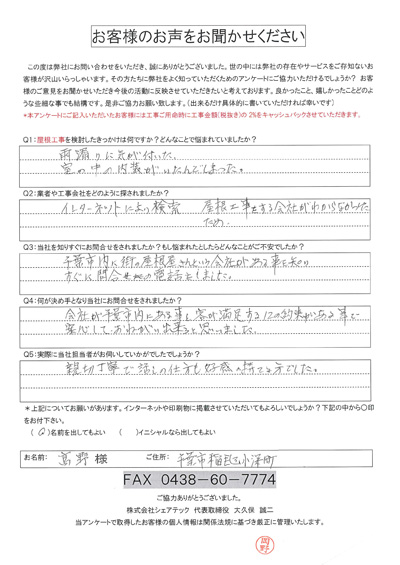 お客様のお声をお聞かせください
この度は弊社にお問い合わせをいただき、誠にありがとうございました。世の中には弊社の存在やサービスをご存知ないお
客様が沢山いらっしゃいます。その方たちに弊社をよく知っていただくためのアンケートにご協力いただけるでしょうか? お客
様のご意見をお聞かせいただき今後の活動に反映させていただきたいと考えております。良かったこと、嬉しかったことどのよ
うな些細な事でも結構です。是非ご協力お願い致します。(出来るだけ具体的に書いていただければ幸いです)
*本アンケートにご記入いただいたお客様には工事ご用命時に工事金額(税抜き)の2%をキャッシュバックさせていただきます。
Q1:屋根工事を検討したきっかけは何ですか?どんなことで悩まれていましたか?
雨漏りに気が付いた、
室の中の内装がいたんでしまった。
Q2:業者や工事会社をどのように探されましたか?
インターネットにより検索 屋根工事をする会社がわからなかった
ため、
Q3:当社を知りすぐにお問合せをされましたか?もし悩まれたとしたらどんなことがご不安でしたか?
千葉市内に街の屋根屋さんという会社がある事を知り
すぐに問合せの電話をしました。
Q4:何が決め手となり当社にお問合せをされましたか?
会社が千葉市内にある事と客が満足する12の約束がある事で
安心しておねがい出来ると思いました。
Q5:実際に当社担当者がお伺いしていかがでしたでしょうか?
親切丁寧で話しの仕方も好感の持てる方でした。
*上記についてお願いがあります。インターネットや印刷物に掲載させていただいてもよろしいでしょうか?下記の中から〇印
をお付下さい。
(〇)名前を出してもよい ( )イニシャルなら出してもよい
お名前: 髙野 様 ご住所: 千葉市稲毛区小深町
FAX 0438-60-7774
ご協力ありがとうございました。
株式会社シェアテック 代表取締役 大久保 誠二
当アンケートで取得したお客様の個人情報は関係法規に基づき厳正に管理いたします。